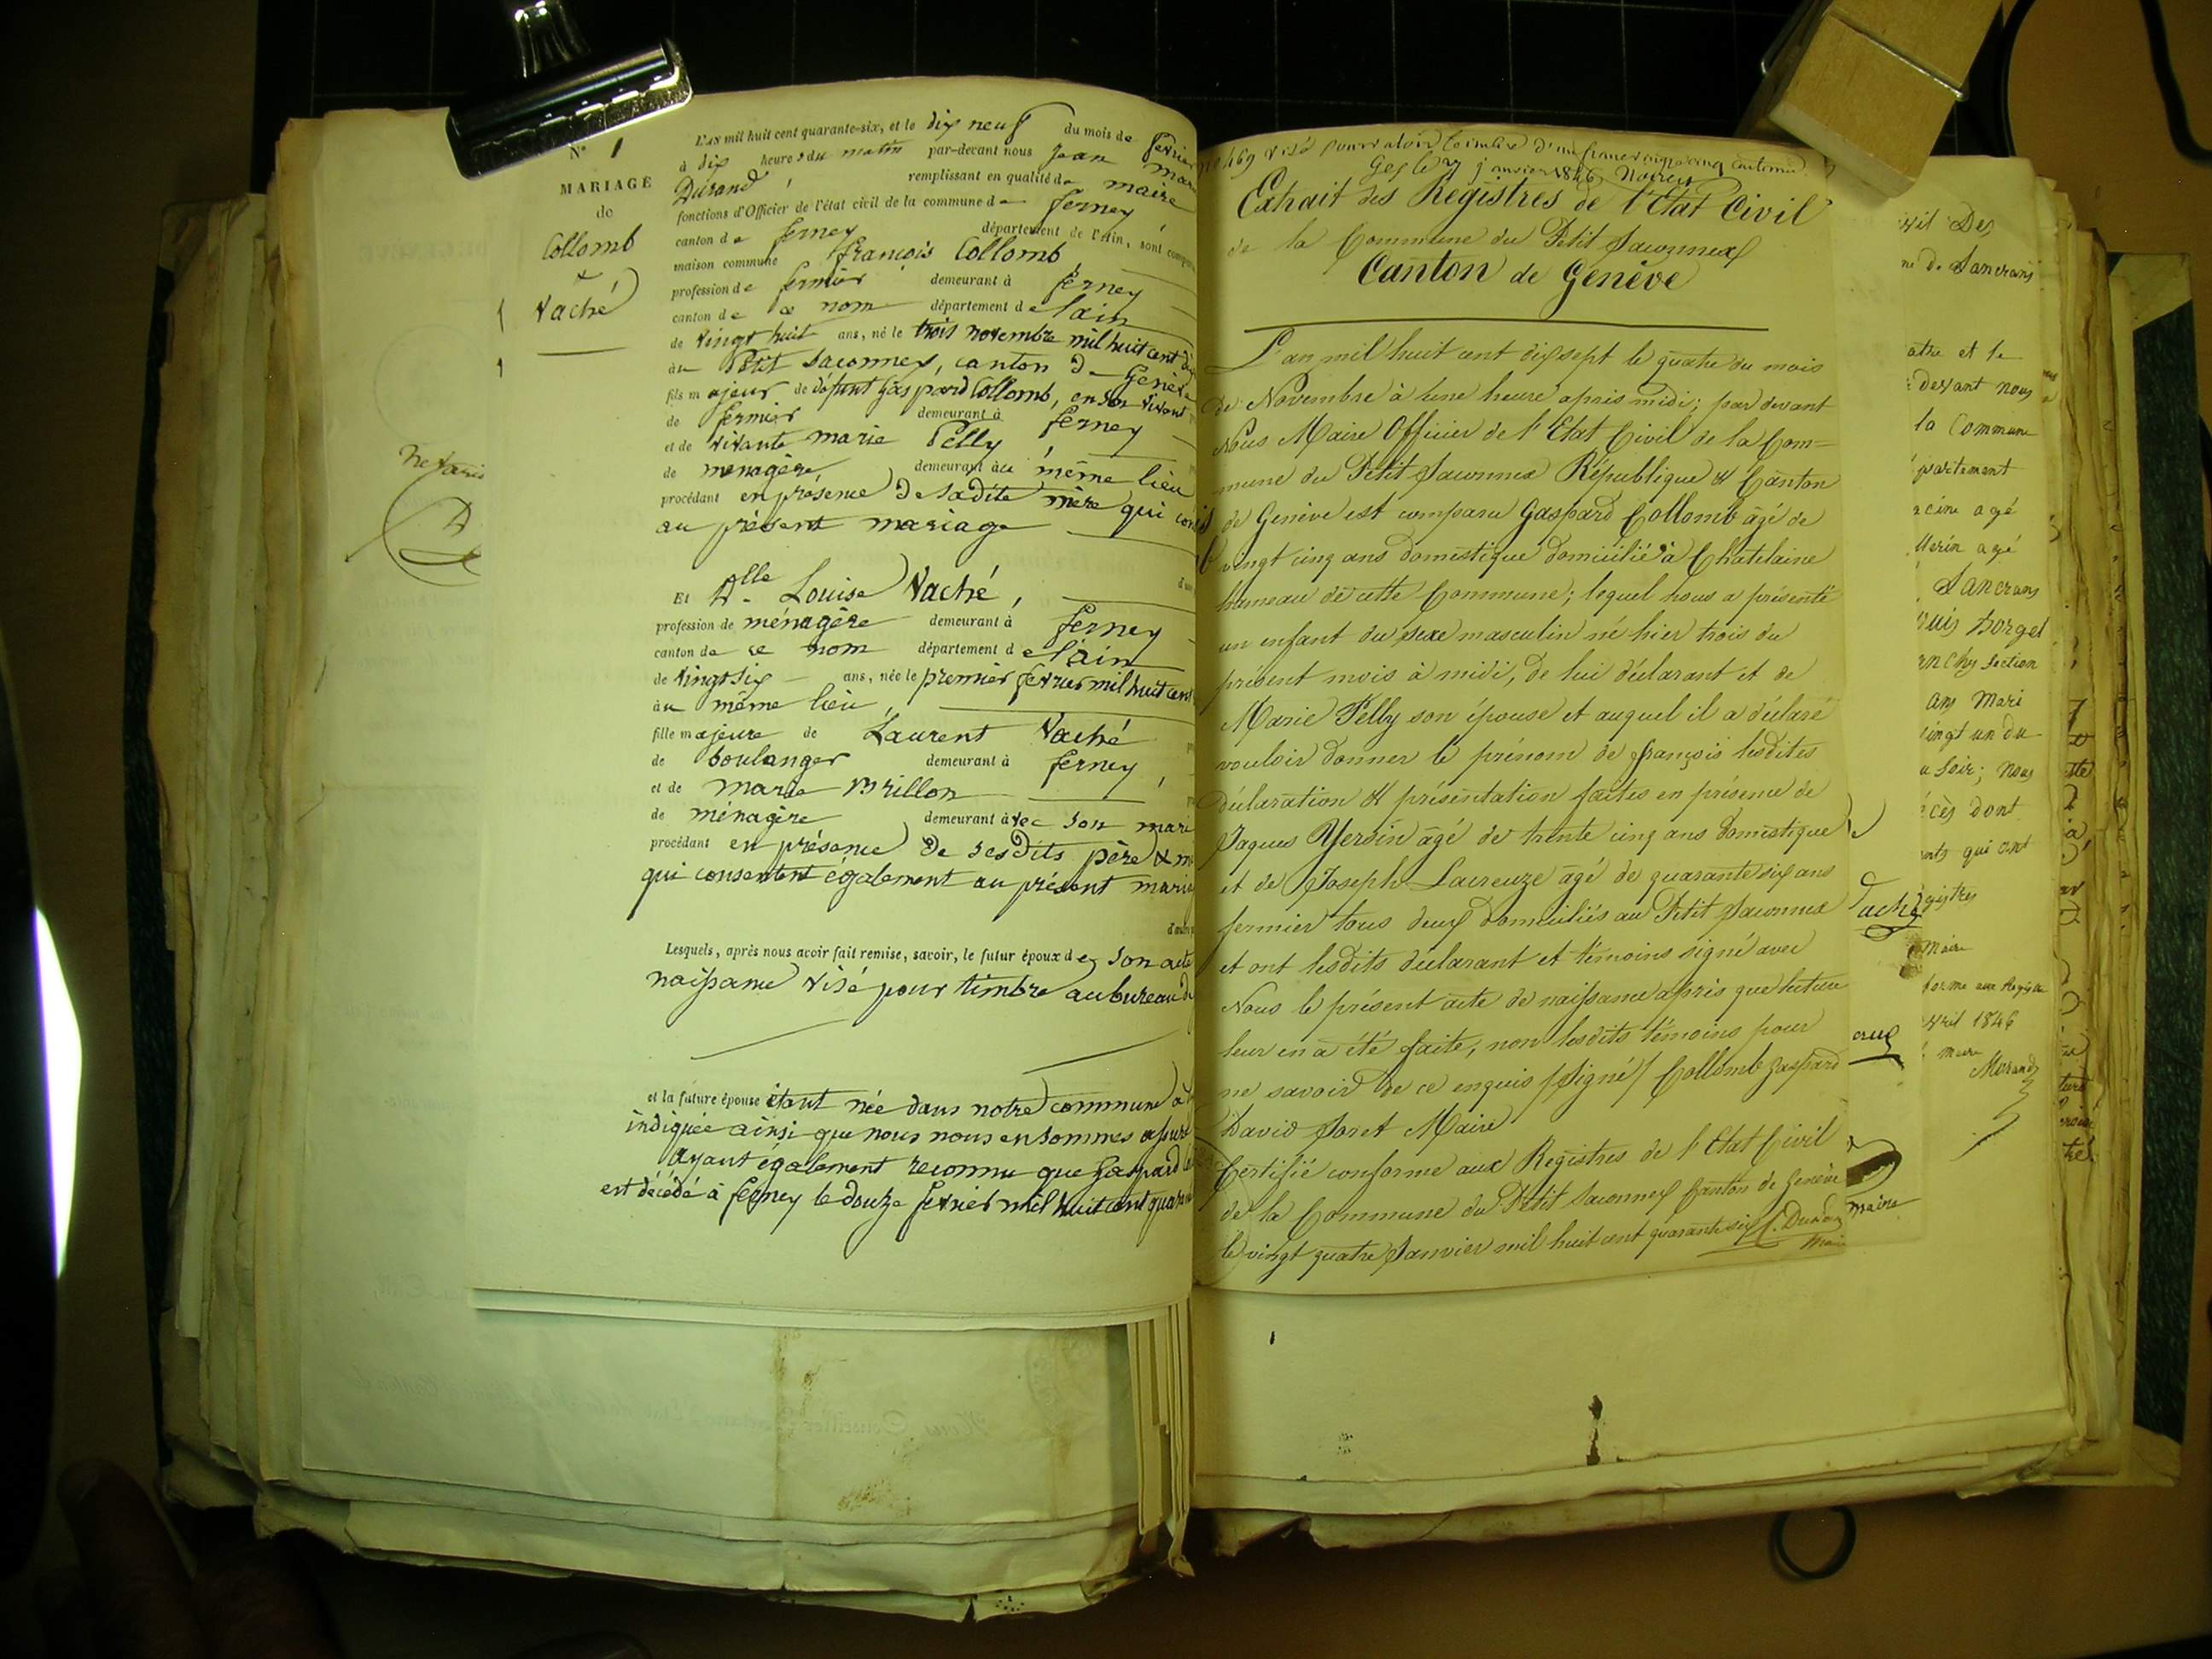 N° 1
MARIAGE
de
Collomb
&
Vaché
L'AN mil huit cent quarante-six, et le dix neuf du mois de fevrier
à dix heures du matin par-devant nous Jean Mar
Durand, remplissant en qualité de maire
fonctions d'Officier de l'état civil de la commune de ferney
canton de ferney département de l'Ain, sont compar
maison commune françois Collomb
profession de fermier demeurant à ferney
canton de ce nom département de lain
de vingt huit ans, né le trois novembre mil huit cent di
au Petit Saconnex, canton de Genève
fils majeur de défunt Gaspard Collomb, en son vivant
de fermier demeurant à ferney
et de vivante marie Pelly,
de menagère, demeurant au même lieu
procédant en présence de sadite mère qui con
au présent mariage
Et Dlle Louise Vaché,
profession de ménagère demeurant à ferney
canton de ce nom département de lain
de vingt six ans, née le premier fevrier mil huit cent
au même lieu,
fille majeure de Laurent Vaché
de boulanger demeurant à ferney,
et de marie Brillon
de ménagère demeurant avec son mari
procédant en présence de sesdits père & m
qui consentent également au présent maria
Lesquels, après nous avoir fait remise, savoir, le futur époux de son acte
naissance visé pour timbre au bureau d
et la future épouse étant née dans notre commune a
indiquée ainsi que nous nous en sommes assuré
Ayant également reconnu que Gaspard
est décédé à ferney le douze fevrier mil huit cent quara
469 visé pour valoir timbre d'un franc vingt cinq centimes
Gex le 27 janvier 1846
Extrait des Registres de l'Etat Civil
de la Commune du Petit Saconnex
Canton de Genève
L'an mil huit cent dix sept le quatre du mois
de Novembre à une heure après midi; par devant
Nous Maire Officier de l'Etat Civil de la Com=
mune du Petit Saconnex République & Canton
de Genève est comparu Gaspard Collomb âgé de
vingt cinq ans domestique domicilié à Chatelaine
hameau de cette Commune; lequel nous a présenté
un enfant du sexe masculin né hier trois du
présent mois à midi, de lui déclarant et de
Marie Pelly son épouse et auquel il a déclaré
vouloir donner le prénom de françois lesdites
déclaration & présentation faites en présence de
Jaques Yersin âgé de trente cinq ans domestique
et de Joseph Lacreuze âgé de quarante six ans
fermier tous deux domiciliés au Petit Saconnex
et ont lesdits déclarant et témoins signé avec
Nous le présent acte de naissance après que lecture
leur en a été faite, non lesdits témoins pour
ne savoir de ce enquis /Signé/ Collomb Gaspard
David Maire
Certifié conforme aux Registres de l'Etat Civil
de la Commune du Petit Saconnex Canton de Genève
le vingt quatre Janvier mil huit cent quarante six
maire
ivil Des
ne de Lancrans
atre et le
devant nous
la Commune
partement
cine agé
agé
Lancrans
section
ans Mari
vingt un du
u soir; nous
cès dont
nts qui ont
gistres
Maire
forme aux Registre
Avril 1846
maire